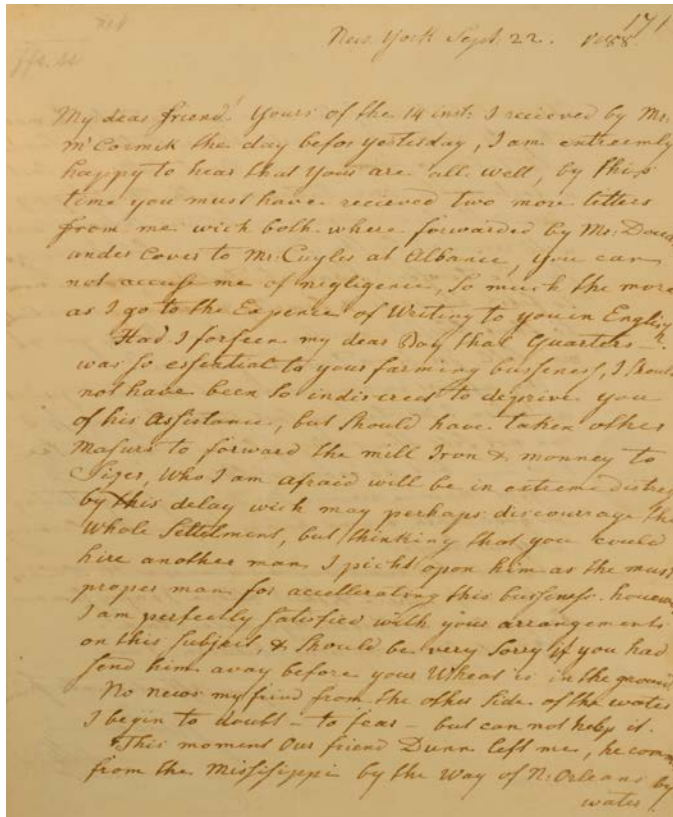 171
New York Sept: 22. 1788.
My dear friend! Yours of the 14 inst: I recieved by Mr:
McCormik the day befor yesterday, I am extreemly
happy to hear that yous are all well, by this
time you must have recieved two more letters
from me wich both where forwarded by Mr:
under cover to Mr: Cuyler at Albanie, you can
not accuse me of negligence, so much the more
as I go to the Expence of Writing to you in English
Had I forseen my dear Boy that Quarters
was so essential to your farming bussiness, I should
not have been so indiscreed to deprive you
of his Assistance, but should have taken other
Masurs to forward the mill Iron & monney to
Siger, Who I am afraid will be in extreme distres
by this delay wich may perhaps discourage the
Whole Settelment, but thinking that you could
hire another man I picht upon him as the must
proper man for accellerating this bussiness. howev
I am perfectly Satisfied with your arrangements
on this Subject, & Should be very Sorry if you had
send him avay before your Wheat is in the ground
No news my friend from the other Side of the water
I begin to doubt – to fear – but can not help it.
This moment Our friend Dunn left me, he com
from the Missisippi by the Way of N: Orleans by
water